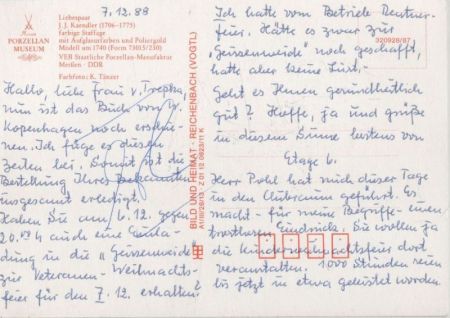 7.12.88
PORZELLAN
MUSEUM
Liebespaar
J. J. Kaendler (1706–1775)
farbige Staffage
mit Aufglasurfarben und Poliergold
Modell um 1740 (Form 73015/230)
VEB Staatliche Porzellan-Manufaktur
Meißen · DDR
Fachfoto: K. Tänzer
Hallo, liebe Frau v. Trepka,
nun ist das Buch von W.
Kopenhagen noch erschie-
nen. Ich füge es diesen
Zeilen bei. Somit ist die
Bestellung Ihres
insgesamt erledigt.
Haben Sie am 6.12. gegen
20.00 auch eine Einla-
dung in die "Geissenweide"
zur Veteranen-Weihnachts-
feier für den 7.12. erhalten?
BILD UND HEIMAT · REICHENBACH (VOGTL)
A1/III/26/13 Z 01 12 0923/11 K
Ich hatte vom Betriebe Rentner-
feier. Hätte es zwar zur
"Geissenweide" noch geschafft,
320928/87
hatte aber keine Lust.-
Geht es Ihnen gesundheitlich
gut? Hoffe, ja und grüße
in diesem Sinne bestens von
Etage 6.
Herr Prohl hat mich dieser Tage
in den Clubraum geführt. Es
macht - für meine Begriffe - einen
Eindruck. Sie wollen ja
die Kinderweihnachtsfeier dort
veranstalten. 1000 Stunden seien
bis jetzt in etwa geleistet worden.